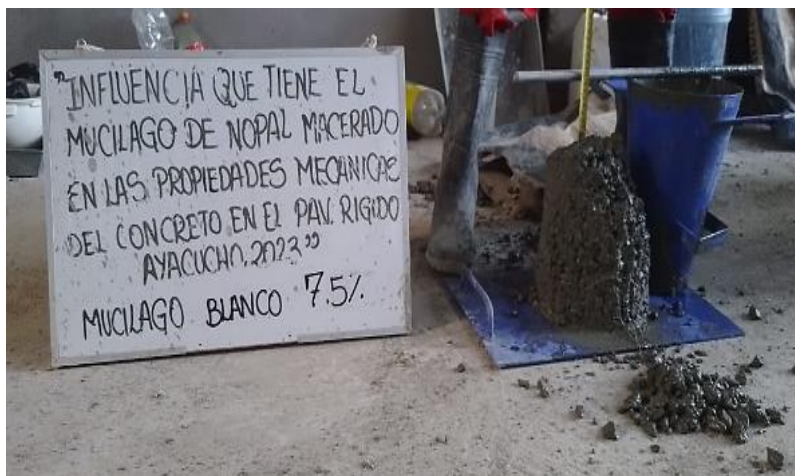 "INFLUENCIA QUE TIENE EL
MUCILAGO DE NOPAL MACERADO
EN LAS PROPIEDADES MECANICAS
DEL CONCRETO EN EL PAV. RIGIDO
AYACUCHO, 2023"
MUCILAGO BLANCO 7.5%